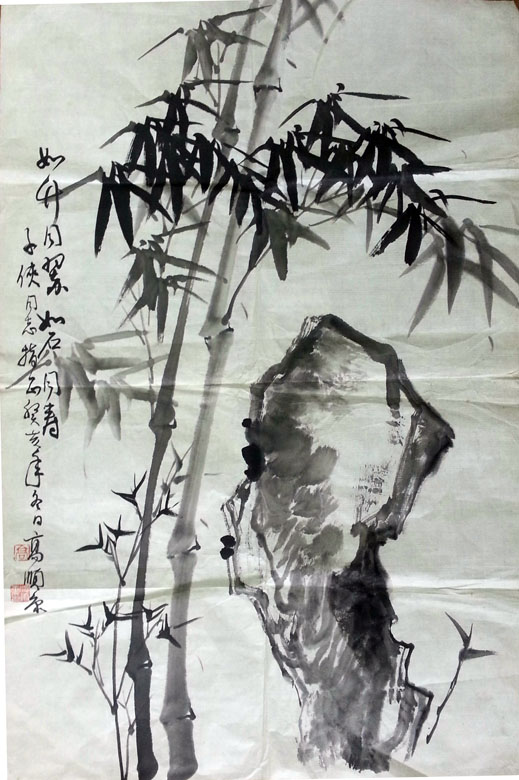 如竹同翠如石同寿
子侠同志指正癸亥年冬日高顺康